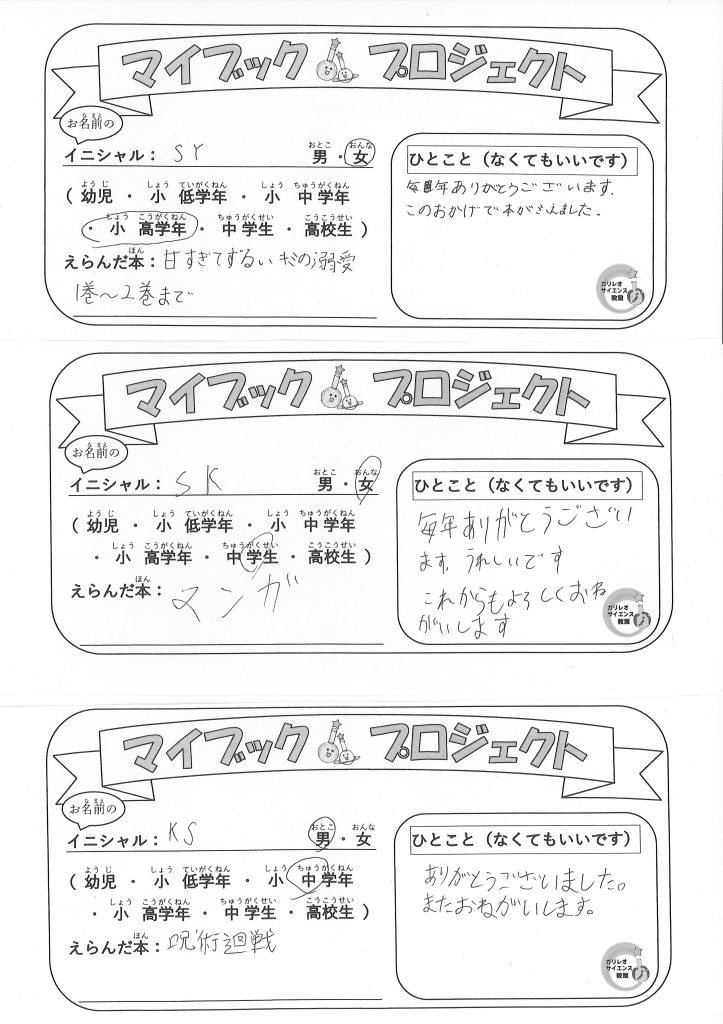 マイブック プロジェクト
お名前の
イニシャル： SY 男・女
（幼児 ・ 小 低学年 ・ 小 中学年
・ 小 高学年 ・ 中学生 ・ 高校生 ）
えらんだ本：甘すぎてずるいキミの溺愛
1巻〜2巻まで
ひとこと（なくてもいいです）
毎年ありがとうございます。
このおかげで本がかえました。
ガリレオ
サイエンス
教室
マイブック プロジェクト
お名前の
イニシャル： SK 男・女
（幼児 ・ 小 低学年 ・ 小 中学年
・ 小 高学年 ・ 中学生 ・ 高校生 ）
えらんだ本： マンガ
ひとこと（なくてもいいです）
毎年ありがとうござい
ます。うれしいです
これからもよろしくおね
がいします
ガリレオ
サイエンス
教室
マイブック プロジェクト
お名前の
イニシャル： KS 男・女
（幼児 ・ 小 低学年 ・ 小 中学年
・ 小 高学年 ・ 中学生 ・ 高校生 ）
えらんだ本：呪術廻戦
ひとこと（なくてもいいです）
ありがとうございました。
またおねがいします。
ガリレオ
サイエンス
教室